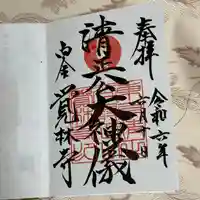 奉拝
令和六年
清正公大神儀
白金
覺林寺